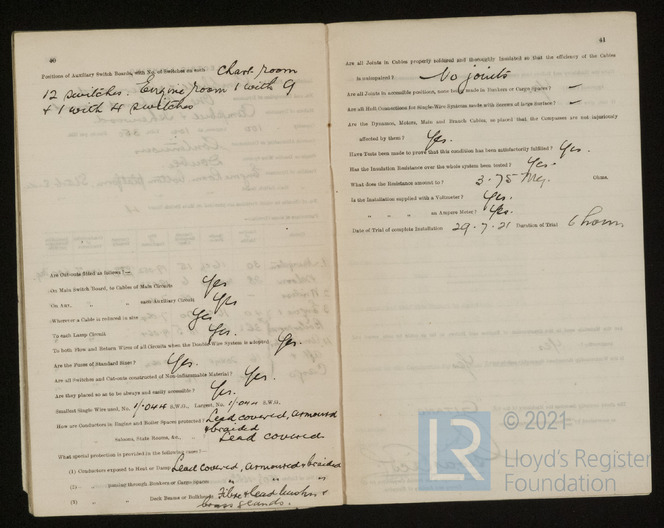 40
Positions of Auxiliary Switch Boards, with No. of Switches on each Chart room
12 switches. Engine room 1 with 9
& 1 with 4 switches
Are Cut-outs fitted as follows?—
On Main Switch Board, to Cables of Main Circuits Yes
On Aux. „ „ each Auxiliary Circuit Yes
Wherever a Cable is reduced in size Yes
To each Lamp Circuit Yes.
To both Flow and Return Wires of all Circuits when the Double Wire System is adopted Yes.
Are the Fuses of Standard Sizes? Yes.
Are all Switches and Cut-outs constructed of Non-inflammable Material? Yes.
Are they placed so as to be always and easily accessible? Yes.
Smallest Single Wire used, No. 1/.044 S.W.G., Largest, No. 1/.044 S.W.G.
How are Conductors in Engine and Boiler Spaces protected? Lead covered, armoured
& braided
„ Saloons, State Rooms, &c., „ Lead covered
What special protection is provided in the following cases?—
(1) Conductors exposed to Heat or Damp Lead covered, armoured & braided
(2) „ passing through Bunkers or Cargo Spaces „ „
(3) „ „ Deck Beams or Bulkheads Fibre & lead bushes &
brass glands.
41
Are all Joints in Cables properly soldered and thoroughly insulated so that the efficiency of the Cables
is unimpaired? No joints
Are all Joints in accessible positions, none being made in Bunkers or Cargo Spaces? —
Are all Hull Connections for Single-Wire Systems made with Screws of large Surface? —
Are the Dynamos, Motors, Main and Branch Cables, so placed that the Compasses are not injuriously
affected by them? Yes.
Have Tests been made to prove that this condition has been satisfactorily fulfilled? Yes.
Has the Insulation Resistance over the whole system been tested? Yes.
What does the Resistance amount to? 3.75 Meg. Ohms.
Is the Installation supplied with a Voltmeter? Yes.
„ „ „ an Ampere Meter? Yes.
Date of Trial of complete Installation 29.7.21 Duration of Trial 6 hours
LR © 2021
Lloyd's Register
Foundation